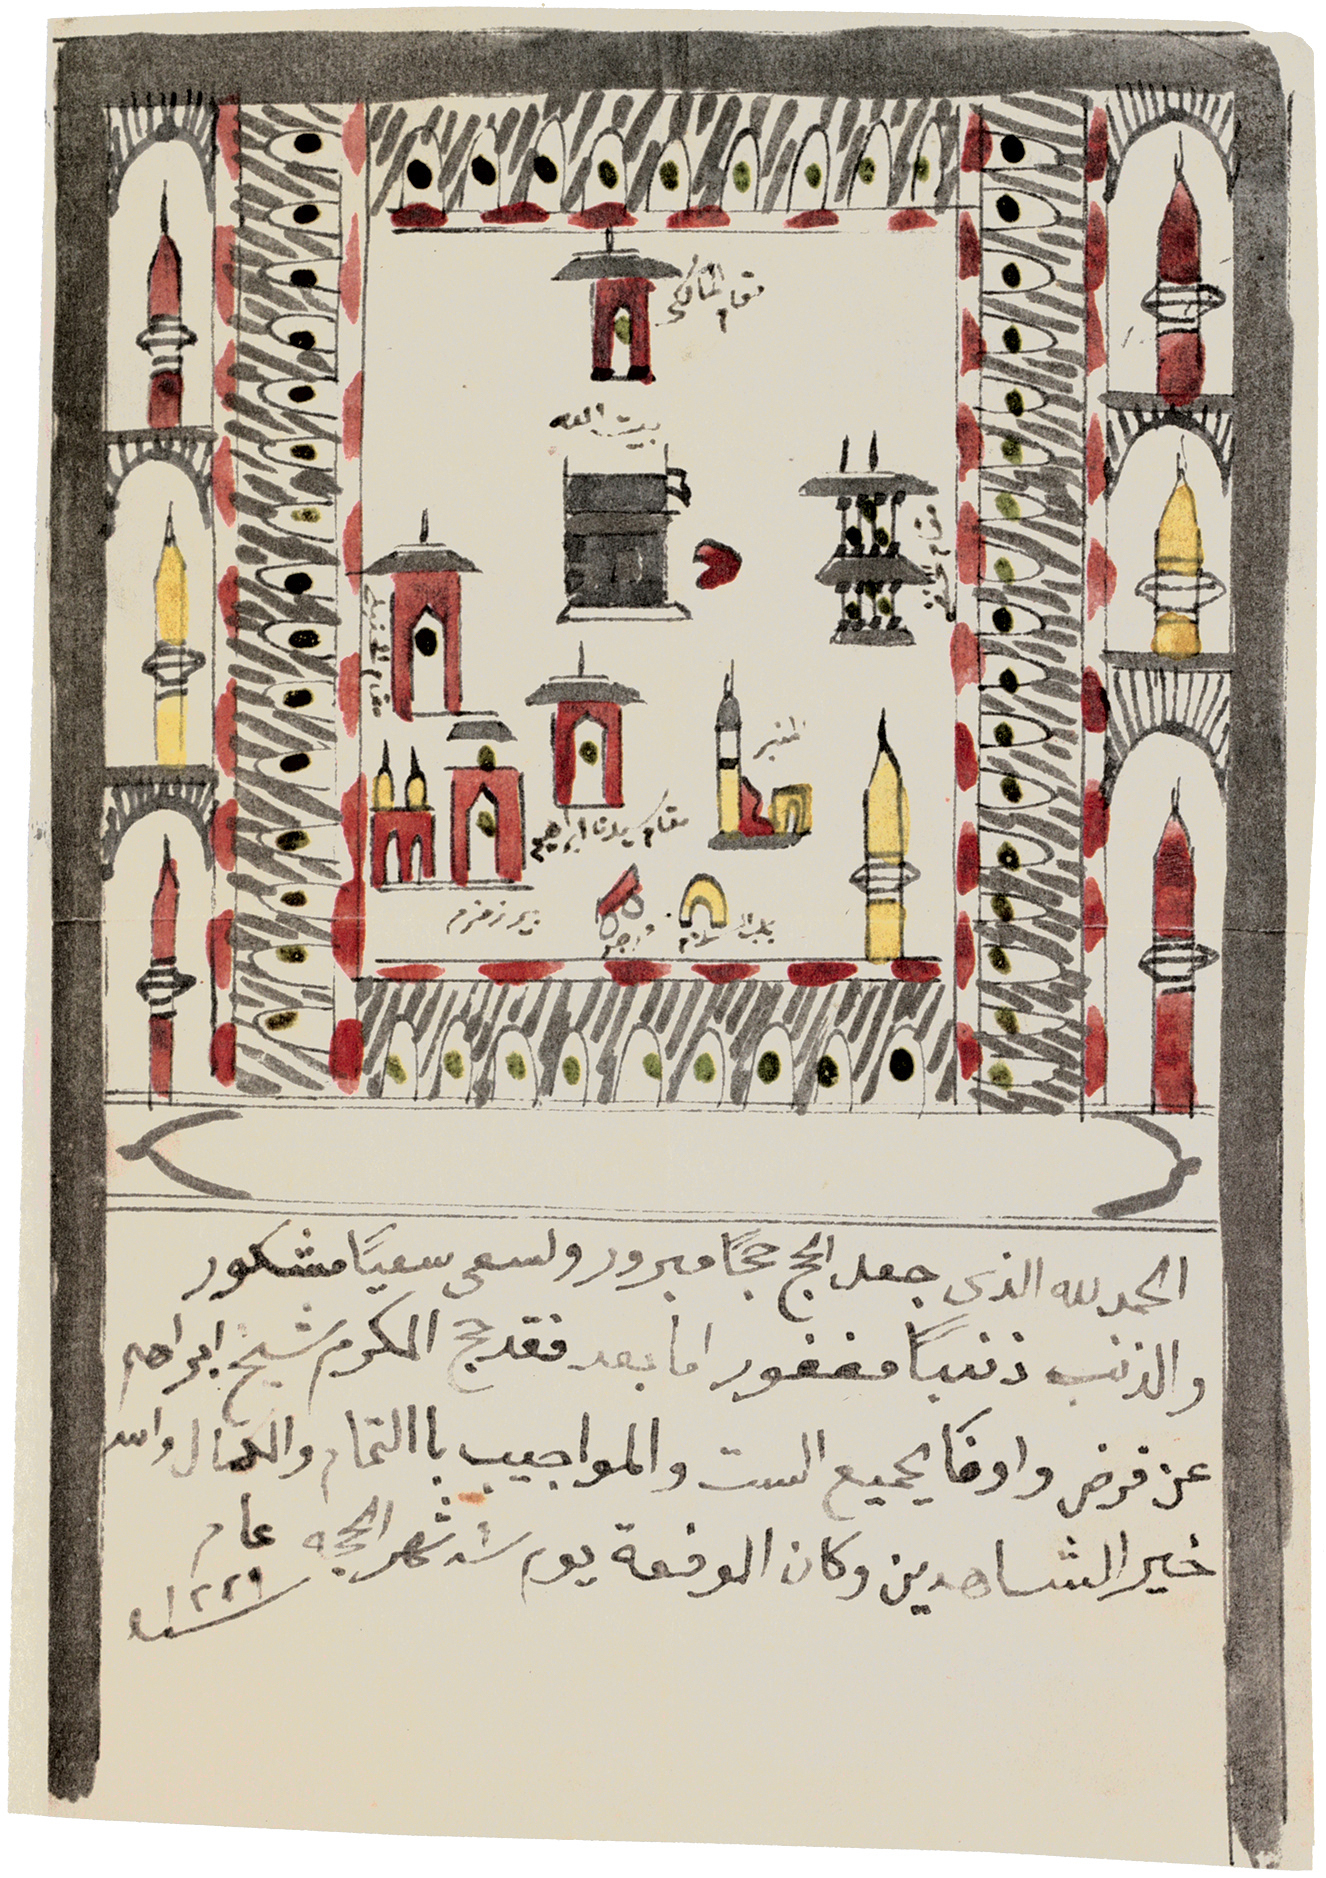 مقام المالكي
بيت الله
مقام الحنفي
المنبر
مقام سيدنا ابراهيم
بير زمزم
درجه
باب السلام
الحمد لله الذى جعل الحج حجًا مبرور ولسعى سعيًا مشكور
والذنب ذنبًا مغفور اما بعد فقد حج المكرم شيخ ابراهيم
عن فرض واوفا بجميع الست والمواجيب باالتمام والكمال والله
خير الشاهدين وكان الوقفة يوم شهر الحجه عام